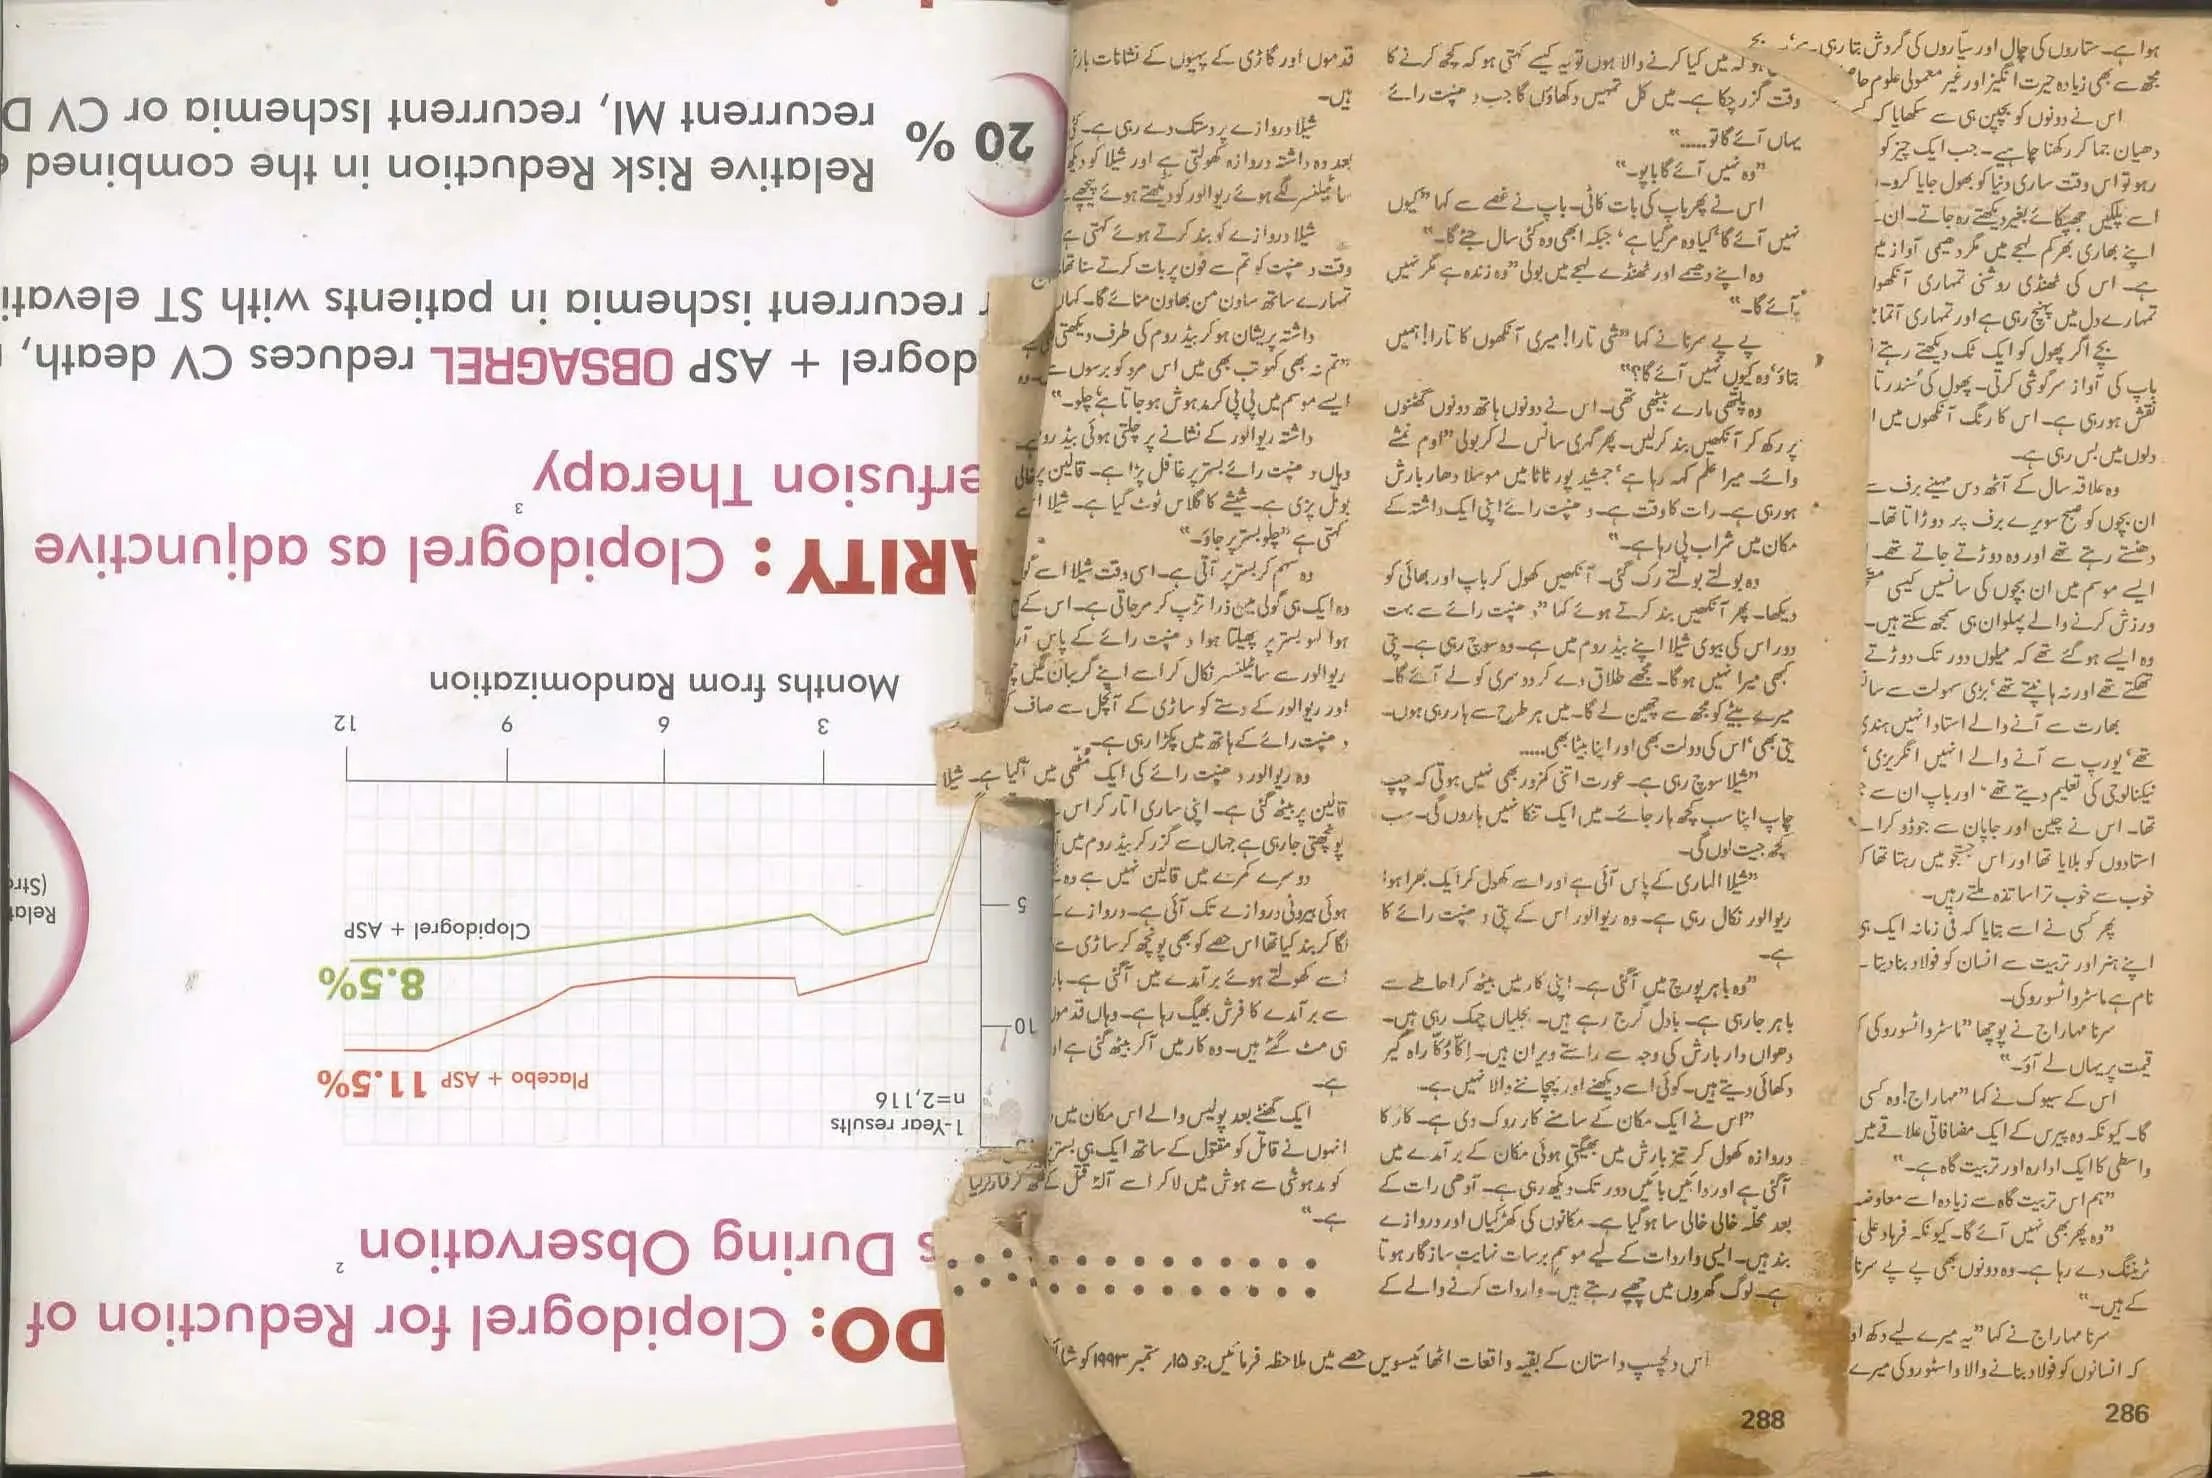 ہوا ہے۔ ستاروں کی چال اور سیاروں کی گردش بتا رہی ہے
مجھ سے بھی زیادہ حیرت انگیز اور غیر معمولی علوم
اس نے دونوں کو بچپن ہی سے سکھایا کہ
دھیان جما کر رکھنا چاہیے۔ جب ایک چیز کو
رہو تو اس وقت ساری دنیا کو بھول جایا کرو۔
اسے پلکیں جھپکائے بغیر دیکھتے رہ جاتے۔ ان
اپنے بھاری بھرکم لہجے میں مگر دھیمی آواز میں
ہے۔ اس کی ٹھنڈی روشنی تمہاری آنکھوں
تمہارے دل میں پہنچ رہی ہے اور تمہاری آتما
بچے اگر پھول کو ایک ٹک دیکھتے رہتے
باپ کی آواز سرگوشی کرتی۔ پھول کی سندرتا
نقش ہو رہی ہے۔ اس کا رنگ آنکھوں میں
دلوں میں بس رہی ہے۔
وہ علاقہ سال کے آٹھ دس مہینے برف سے
ان بچوں کو صبح سویرے برف پر دوڑاتا تھا۔
دھنستے رہتے تھے اور وہ دوڑتے جاتے تھے۔
ایسے موسم میں ان بچوں کی سانسیں کیسی
ورزش کرنے والے پہلوان ہی سمجھ سکتے ہیں۔
وہ ایسے ہو گئے تھے کہ میلوں دور تک دوڑتے
تھکتے تھے اور نہ ہانپتے تھے، بڑی سہولت سے
بھارت سے آنے والے استاد انہیں ہندی
تھے، یورپ سے آنے والے انہیں انگریزی،
ٹیکنالوجی کی تعلیم دیتے تھے، اور باپ ان سے
تھا۔ اس نے چین اور جاپان سے جوڈو کراٹے
استادوں کو بلایا تھا اور اس جستجو میں رہتا تھا کہ
خوب سے خوب تر اساتذہ ملتے رہیں۔
پھر کسی نے اسے بتایا کہ فی زمانہ ایک ہی
اپنے ہنر اور تربیت سے انسان کو فولاد بنا دیتا۔
نام ہے ماسٹر وانسوروکی۔
سرنا مہاراج نے پوچھا "ماسٹر وانسوروکی
قیمت پر یہاں لے آؤ۔"
اس کے سیوک نے کہا "مہاراج! وہ کسی
گا۔ کیونکہ وہ پیرس کے ایک مضافاتی علاقے میں
واسطی کا ایک ادارہ اور تربیت گاہ ہے۔"
"ہم اس تربیت گاہ سے زیادہ اسے معاوضہ
"وہ پھر بھی نہیں آئے گا۔ کیونکہ فرہاد علی
ٹریننگ دے رہا ہے۔ وہ دونوں بھی پے پے سرنا
کے ہیں۔"
سرنا مہاراج نے کہا "یہ میرے لیے دکھ
کہ انسانوں کو فولاد بنانے والا وانسوروکی میرے
286
ہو کہ میں کیا کرنے والا ہوں تو یہ کیسے کہتی ہو کہ کچھ کرنے کا
وقت گزر چکا ہے۔ میں کل تمہیں دکھاؤں گا جب دھنپت رائے
یہاں آئے گا تو....."
"وہ نہیں آئے گا باپو۔"
اس نے پھر باپ کی بات کاٹی۔ باپ نے غصے سے کہا "کیوں
نہیں آئے گا، کیا وہ مر گیا ہے، جبکہ ابھی وہ کئی سال جئے گا۔"
وہ اپنے دھیمے اور ٹھنڈے لہجے میں بولی "وہ زندہ ہے مگر نہیں
آئے گا۔"
پے پے سرنا نے کہا "شی تارا! میری آنکھوں کا تارا! ہمیں
بتاؤ، وہ کیوں نہیں آئے گا؟"
وہ پلتھی مارے بیٹھی تھی۔ اس نے دونوں ہاتھ دونوں گھٹنوں
پر رکھ کر آنکھیں بند کر لیں۔ پھر گہری سانس لے کر بولی "اوم نمشے
وائے۔ میرا علم کہہ رہا ہے، جمشید پور ٹاٹا میں موسلا دھار بارش
ہو رہی ہے۔ رات کا وقت ہے۔ دھنپت رائے اپنی ایک داشتہ کے
مکان میں شراب پی رہا ہے۔"
وہ بولتے بولتے رک گئی۔ آنکھیں کھول کر باپ اور بھائی کو
دیکھا۔ پھر آنکھیں بند کرتے ہوئے کہا "دھنپت رائے سے بہت
دور اس کی بیوی شیلا اپنے بیڈ روم میں ہے۔ وہ سوچ رہی ہے۔ پتی
کبھی میرا نہیں ہوگا۔ مجھے طلاق دے کر دوسری کو لے آئے گا۔
میرے بیٹے کو مجھ سے چھین لے گا۔ میں ہر طرح سے ہار رہی ہوں۔
پتی بھی، اس کی دولت بھی اور اپنا بیٹا بھی.....
"شیلا سوچ رہی ہے۔ عورت اتنی کمزور بھی نہیں ہوتی کہ چپ
چاپ اپنا سب کچھ ہار جائے۔ میں ایک تنکا نہیں ہاروں گی۔ سب
کچھ جیت لوں گی۔
"شیلا الماری کے پاس آئی ہے اور اسے کھول کر ایک بھرا ہوا
ریوالور نکال رہی ہے۔ وہ ریوالور اس کے پتی دھنپت رائے کا
ہے۔
"وہ باہر پورچ میں آگئی ہے۔ اپنی کار میں بیٹھ کر احاطے سے
باہر جا رہی ہے۔ بادل گرج رہے ہیں۔ بجلیاں چمک رہی ہیں۔
دھواں دار بارش کی وجہ سے راستے ویران ہیں۔ اِکّا دُکّا راہ گیر
دکھائی دیتے ہیں۔ کوئی اسے دیکھنے اور پہچاننے والا نہیں ہے۔
"اس نے ایک مکان کے سامنے کار روک دی ہے۔ کار کا
دروازہ کھول کر تیز بارش میں بھیگتی ہوئی مکان کے برآمدے میں
آگئی ہے اور دائیں بائیں دور تک دیکھ رہی ہے۔ آدھی رات کے
بعد محلّہ خالی خالی سا ہو گیا ہے۔ مکانوں کی کھڑکیاں اور دروازے
بند ہیں۔ ایسی واردات کے لیے موسم برسات نہایت سازگار ہوتا
ہے۔ لوگ گھروں میں چھپے رہتے ہیں۔ واردات کرنے والے کے
قدموں اور گاڑی کے پہیوں کے نشانات بارش
ہیں۔
شیلا دروازے پر دستک دے رہی ہے۔ کئی
بعد وہ داشتہ دروازہ کھولتی ہے اور شیلا کو دیکھ
سائیلنسر لگے ہوئے ریوالور کو دیکھتے ہوئے پیچھے
شیلا دروازے کو بند کرتے ہوئے کہتی ہے
وقت دھنپت کو تم سے فون پر بات کرتے سنا تھا
تمہارے ساتھ ساون من بھاون منائے گا۔ کہاں
داشتہ پریشان ہو کر بیڈ روم کی طرف دیکھتی ہے
"تم نہ بھی کہو تب بھی میں اس مرد کو برسوں سے
ایسے موسم میں پی پی کر مدہوش ہو جاتا ہے، چلو۔"
داشتہ ریوالور کے نشانے پر چلتی ہوئی بیڈ روم
وہاں دھنپت رائے بستر پر غافل پڑا ہے۔ قالین پر خالی
بوتل پڑی ہے۔ شیشے کا گلاس ٹوٹ گیا ہے۔ شیلا
کہتی ہے "چلو بستر پر جاؤ۔"
وہ سہم کر بستر پر آتی ہے۔ اسی وقت شیلا اسے
وہ ایک ہی گولی میں ذرا تڑپ کر مر جاتی ہے۔ اس کے
ہوا لہو بستر پر پھیلتا ہوا دھنپت رائے کے پاس
ریوالور سے سائیلنسر نکال کر اسے اپنے گریبان میں
اور ریوالور کے دستے کو ساڑی کے آنچل سے صاف
دھنپت رائے کے ہاتھ میں پکڑا رہی ہے۔
وہ ریوالور دھنپت رائے کی ایک مٹھی میں آگیا ہے۔ شیلا
قالین پر بیٹھ گئی ہے۔ اپنی ساری اتار کر اس
پونچھتی جا رہی ہے جہاں سے گزر کر بیڈ روم میں
دوسرے کمرے میں قالین نہیں ہے وہ
ہوئی بیرونی دروازے تک آئی ہے۔ دروازے
لگا کر بند کیا تھا اس حصے کو بھی پونچھ کر ساڑی سے
اسے کھولتے ہوئے برآمدے میں آگئی ہے۔
سے برآمدے کا فرش بھیگ رہا ہے۔ وہاں قدموں
ہی مٹ گئے ہیں۔ وہ کار میں آکر بیٹھ گئی ہے
ہے۔
ایک گھنٹے بعد پولیس والے اس مکان میں
انہوں نے قاتل کو مقتول کے ساتھ ایک ہی بستر
کو مدہوشی سے ہوش میں لا کر اسے آلہ قتل کے ساتھ گرفتار کر لیا
ہے۔"
اس دلچسپ داستان کے بقیہ واقعات اٹھائیسویں حصے میں ملاحظہ فرمائیں جو ۱۵ر ستمبر ۱۹۹۳ کو
288
DO: Clopidogrel for Reduction of
s During Observation 2
1-Year results
n=2,116
Placebo + ASP 11.5%
8.5%
Clopidogrel + ASP
5
10
3
6
9
12
Months from Randomization
ARITY : Clopidogrel as adjunctive
erfusion Therapy 3
dogrel + ASP OBSAGREL reduces CV death,
r recurrent ischemia in patients with ST elevati
20 %
Relative Risk Reduction in the combined
recurrent MI, recurrent Ischemia or CV D
Relat
(Str